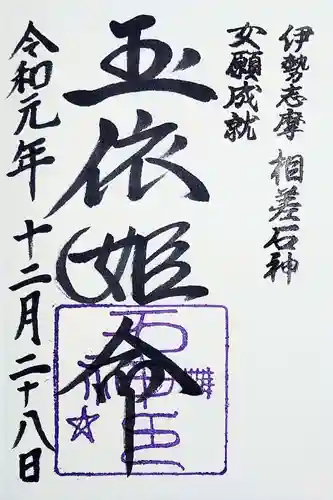 伊勢志摩 相差石神
女願成就
玉依姫命
令和元年 十二月二十八日